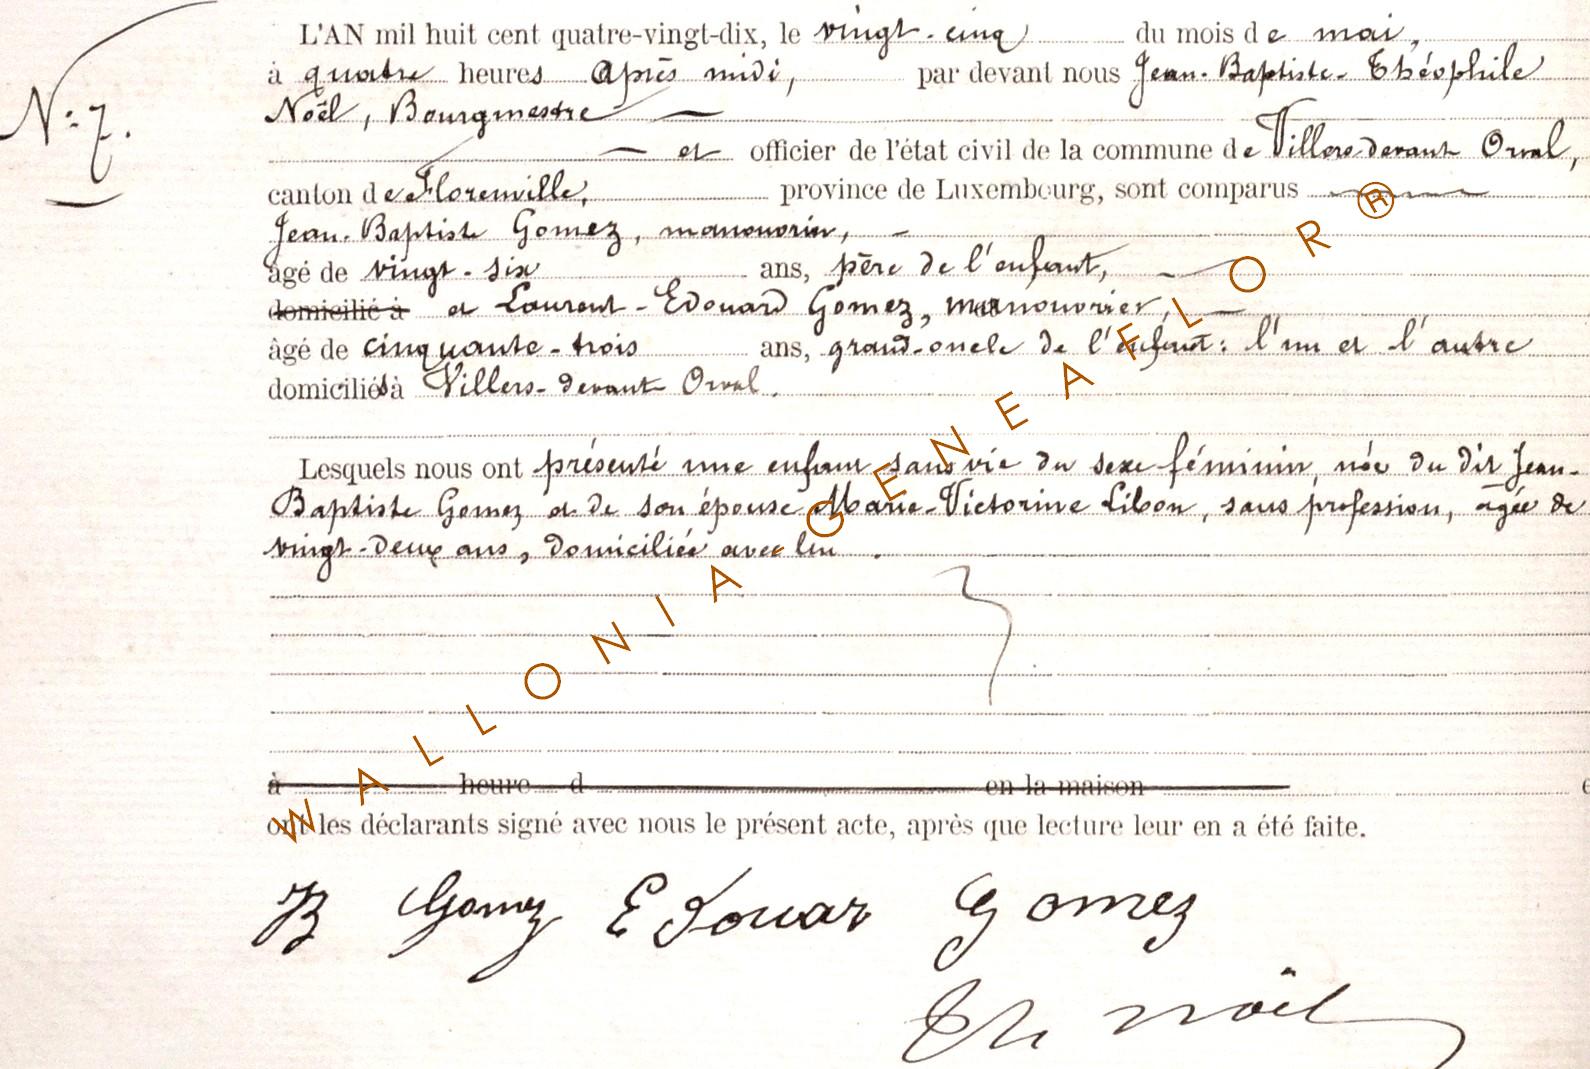 L'AN mil huit cent quatre-vingt-dix, le vingt-cinq du mois de mai,
N° 7.
à quatre heures après midi, par devant nous Jean-Baptiste-Théophile
Noël, Bourgmestre
et officier de l'état civil de la commune de Villers-devant Orval,
canton de Florenville, province de Luxembourg, sont comparus
Jean-Baptiste Gomez, manouvrier,
âgé de vingt-six ans, père de l'enfant,
domicilié à et Laurent-Edouard Gomez, manouvrier,
âgé de cinquante-trois ans, grand-oncle de l'enfant: l'un et l'autre
domiciliés à Villers-devant Orval.
Lesquels nous ont présenté une enfant sans vie du sexe féminin, née du dit Jean-
Baptiste Gomez et de son épouse Marie-Victorine Libon, sans profession, âgée de
vingt-deux ans, domiciliée avec lui.
à heure d en la maison e
ont les déclarants signé avec nous le présent acte, après que lecture leur en a été faite.
JB Gomez Edouar Gomez
Th Noël
WALLONIA GENEAFLOR®